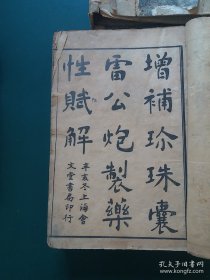 增補珍珠囊
雷公炮製藥
性賦解
辛亥冬上海會
文堂書局印行
孔夫子旧书网